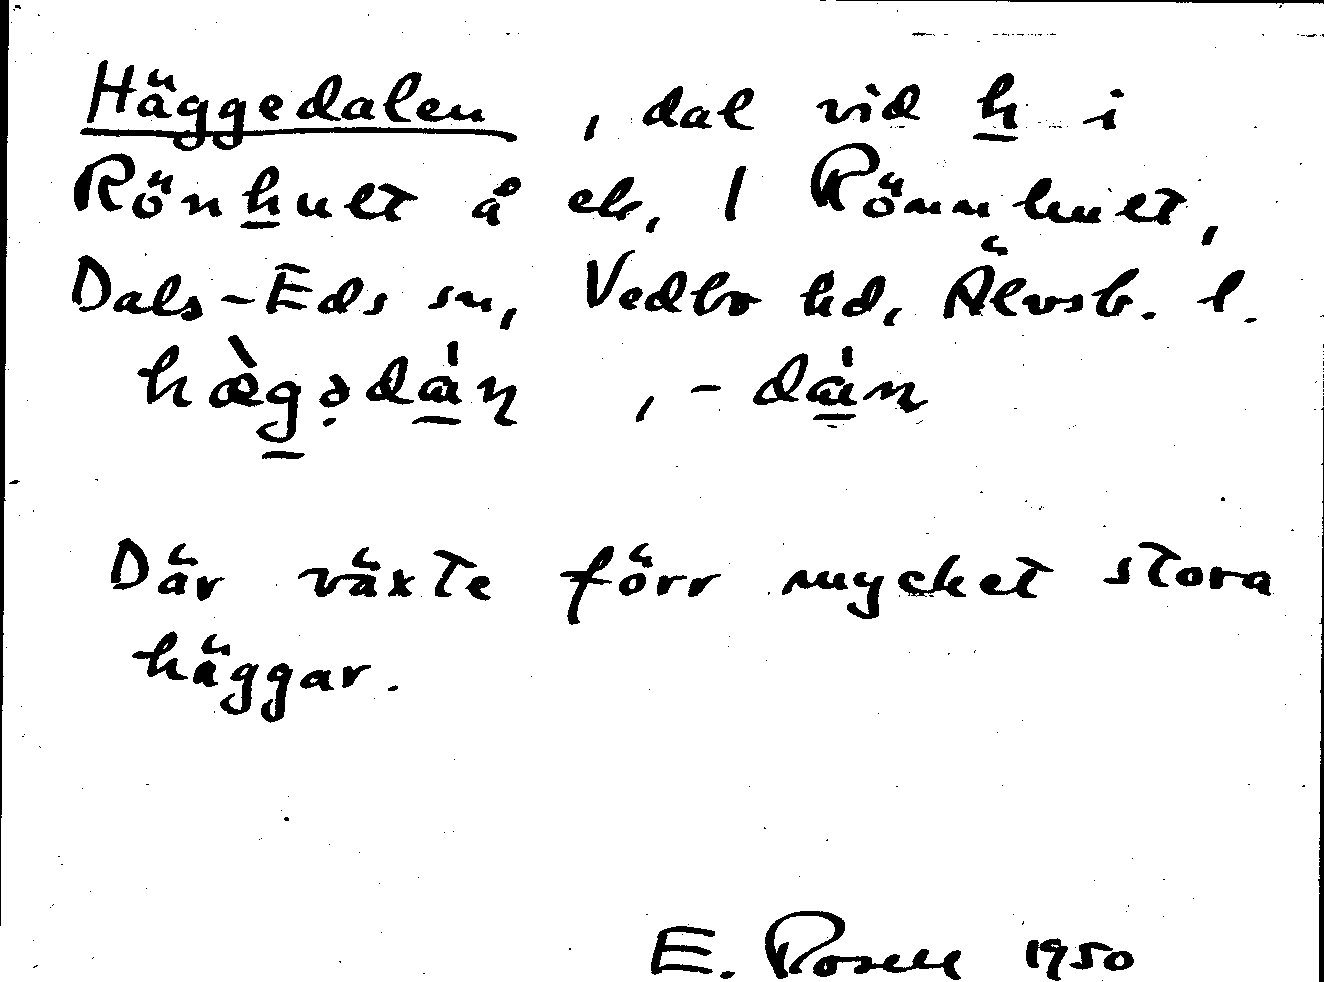 Häggedalen, dal vid h i
Rönhult å ek. 1 Rönnhult,
Dals-Eds sn, Vedbo hd, Älvsb. l.
hæ̀gədán, -dán
Där växte förr mycket stora
häggar.
E. Rosell 1950